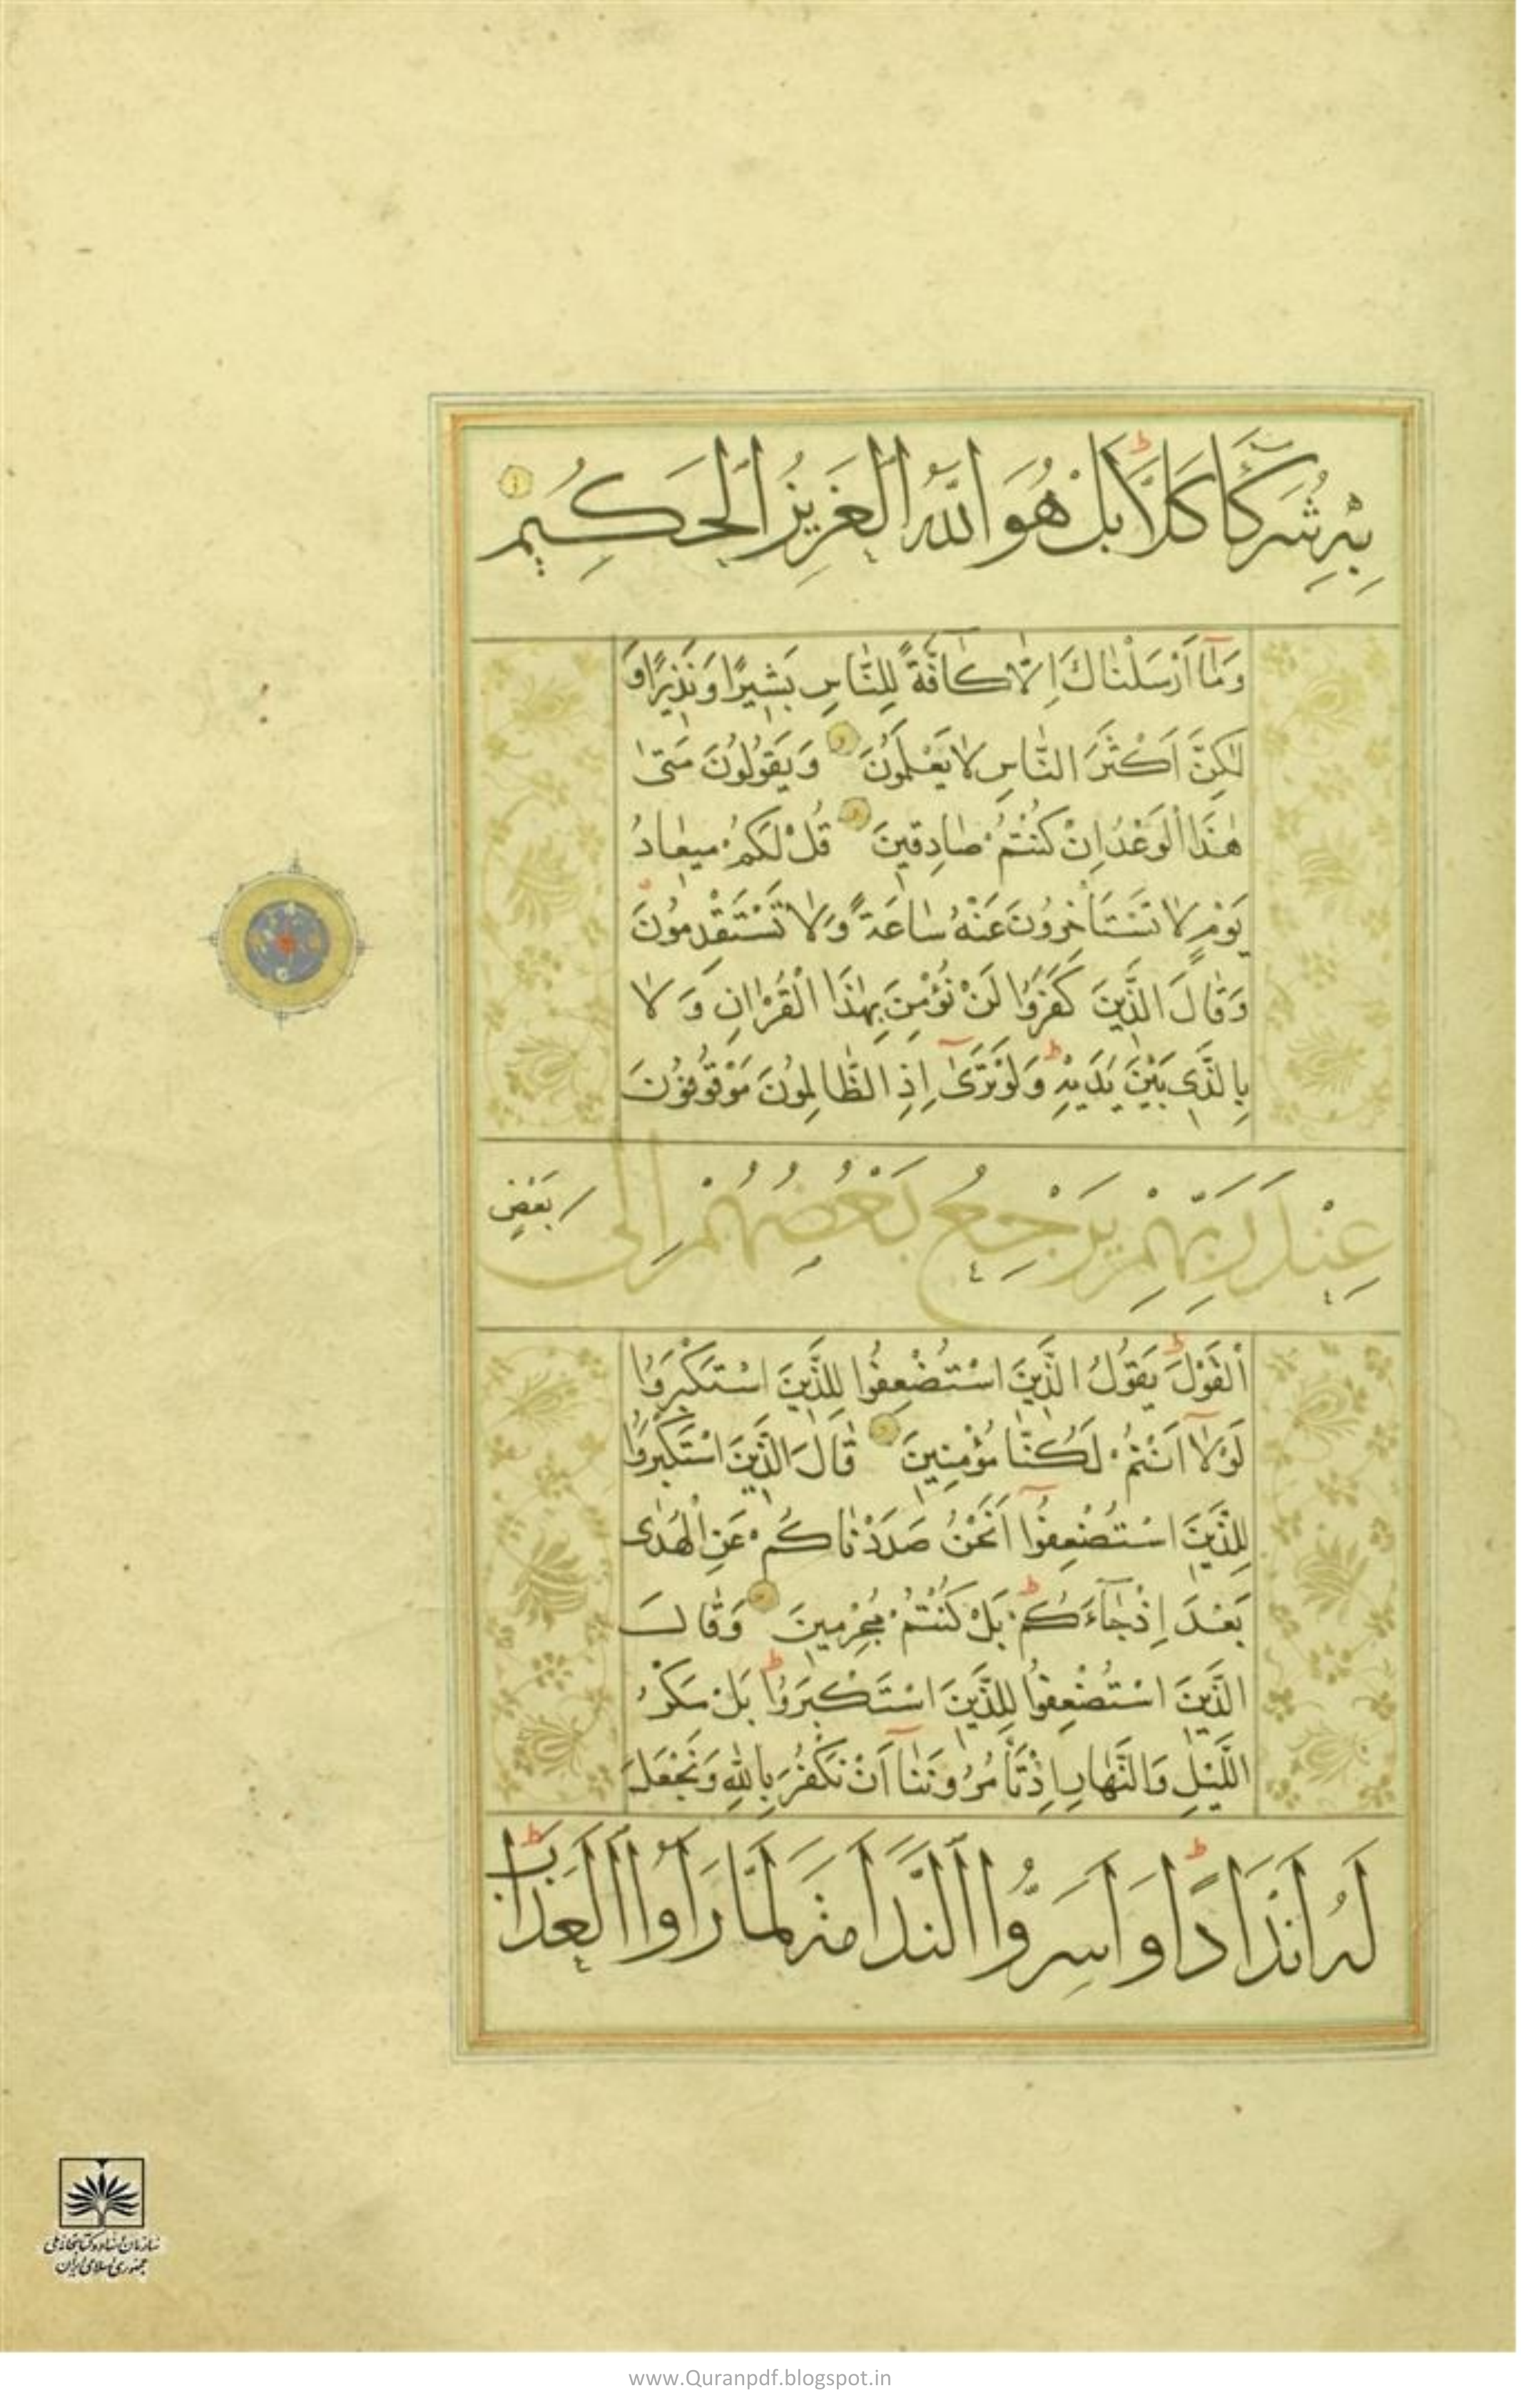 بِهٖ شُرَكَآءَ كَلَّا بَلْ هُوَ اللّٰهُ الْعَزِيزُ الْحَكِيمُ
وَمَٓا اَرْسَلْنَاكَ اِلَّا كَٓافَّةً لِلنَّاسِ بَشِيرًا وَنَذِيرًا وَ
لٰكِنَّ اَكْثَرَ النَّاسِ لَا يَعْلَمُونَ وَيَقُولُونَ مَتٰى
هٰذَا الْوَعْدُ اِنْ كُنْتُمْ صَادِقِينَ قُلْ لَكُمْ مِيعَادُ
يَوْمٍ لَا تَسْتَأْخِرُونَ عَنْهُ سَاعَةً وَلَا تَسْتَقْدِمُونَ
وَقَالَ الَّذِينَ كَفَرُوا لَنْ نُؤْمِنَ بِهٰذَا الْقُرْاٰنِ وَلَا
بِالَّذِي بَيْنَ يَدَيْهِ وَلَوْ تَرٰٓى اِذِ الظَّالِمُونَ مَوْقُوفُونَ
عِنْدَ رَبِّهِمْ يَرْجِعُ بَعْضُهُمْ اِلٰى بَعْضٍ
اۨلْقَوْلَ يَقُولُ الَّذِينَ اسْتُضْعِفُوا لِلَّذِينَ اسْتَكْبَرُوا
لَوْلَٓا اَنْتُمْ لَكُنَّا مُؤْمِنِينَ قَالَ الَّذِينَ اسْتَكْبَرُوا
لِلَّذِينَ اسْتُضْعِفُٓوا اَنَحْنُ صَدَدْنَاكُمْ عَنِ الْهُدٰى
بَعْدَ اِذْ جَٓاءَكُمْ بَلْ كُنْتُمْ مُجْرِمِينَ وَقَالَ
الَّذِينَ اسْتُضْعِفُوا لِلَّذِينَ اسْتَكْبَرُوا بَلْ مَكْرُ
اللَّيْلِ وَالنَّهَارِ اِذْ تَأْمُرُونَنَٓا اَنْ نَكْفُرَ بِاللّٰهِ وَنَجْعَلَ
لَهُ اَنْدَادًا وَاَسَرُّوا النَّدَامَةَ لَمَّا رَاَوُا الْعَذَابَ
سازمان اسناد و کتابخانه ملی
جمهوری اسلامی ایران
www.Quranpdf.blogspot.in